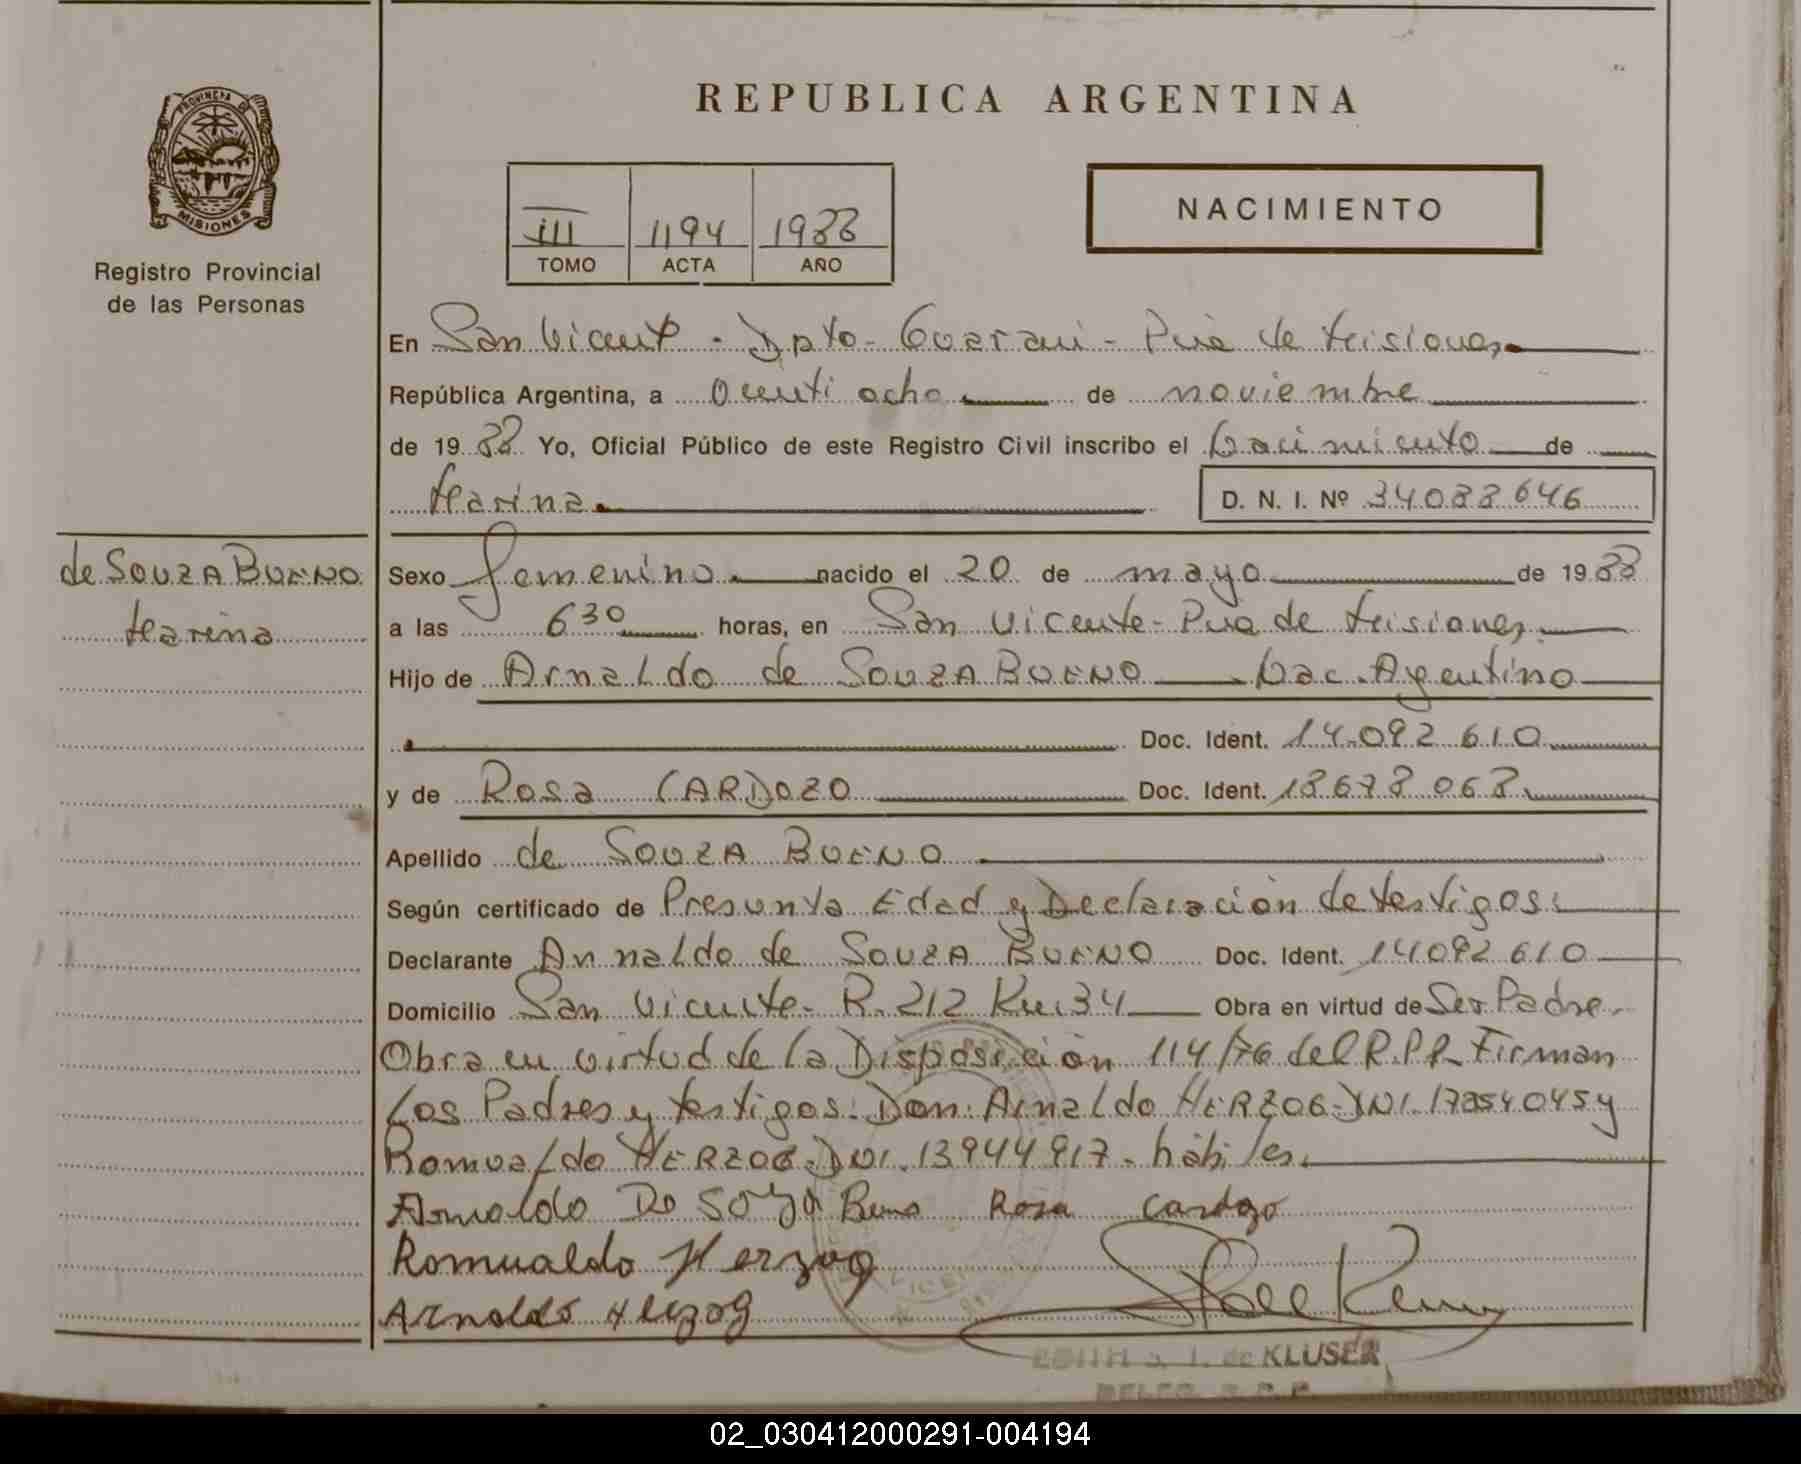 REPUBLICA ARGENTINA
PROVINCIA DE
MISIONES
Registro Provincial
de las Personas
III 1194 1988
TOMO ACTA AÑO
NACIMIENTO
En San Vicente - Dpto - Guarani - Pcia de Misiones
República Argentina, a Veinti ocho de noviembre
de 1988 Yo, Oficial Público de este Registro Civil inscribo el Nacimiento de
Marina D. N. I. Nº 34088646
de SOUZA BUENO
Marina
Sexo Femenino nacido el 20 de mayo de 1988
a las 6 30 horas, en San Vicente - Pcia de Misiones
Hijo de Arnaldo de SOUZA BUENO Nac. Argentino
Doc. Ident. 14.092 610
y de Rosa CARDOZO Doc. Ident. 18678 068
Apellido de SOUZA BUENO
Según certificado de Presunta Edad y Declaración de testigos
Declarante Arnaldo de SOUZA BUENO Doc. Ident. 14092 610
Domicilio San Vicente - R. 212 Km 34 Obra en virtud de Ser Padre
Obra en virtud de la Disposición 114/76 del R.P.P. Firman
Los Padres y testigos: Don: Arnaldo HERZOG - DNI. 17854045 y
Romualdo HERZOG. DNI. 13944917 - hábiles
Arnoldo De Soza Bueno Rosa Cardozo
Romualdo Herzog
Arnoldo Herzog
de KLUSER
02_030412000291-004194